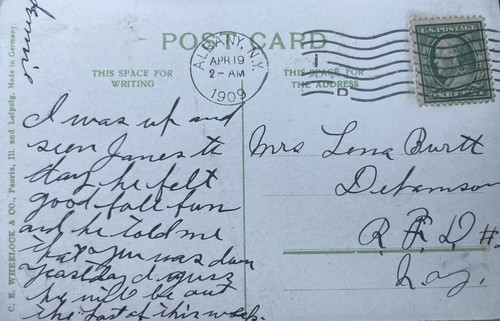 POST CARD
ALBANY, N.Y.
APR 19
2-AM
1909
1
D
U.S. POSTAGE
THIS SPACE FOR
WRITING
THIS SPACE FOR
THE ADDRESS
C. E. WHEELOCK & CO., Peoria, Ill. and Leipzig. Made in Germany.
I was up and
seen James th
day he felt
good full fun
and he told me
that you was down
yeastday I guess
he will be out
the last of this week.
Mrs Lena Burtt
Delamson
R. F. D #
N.Y.